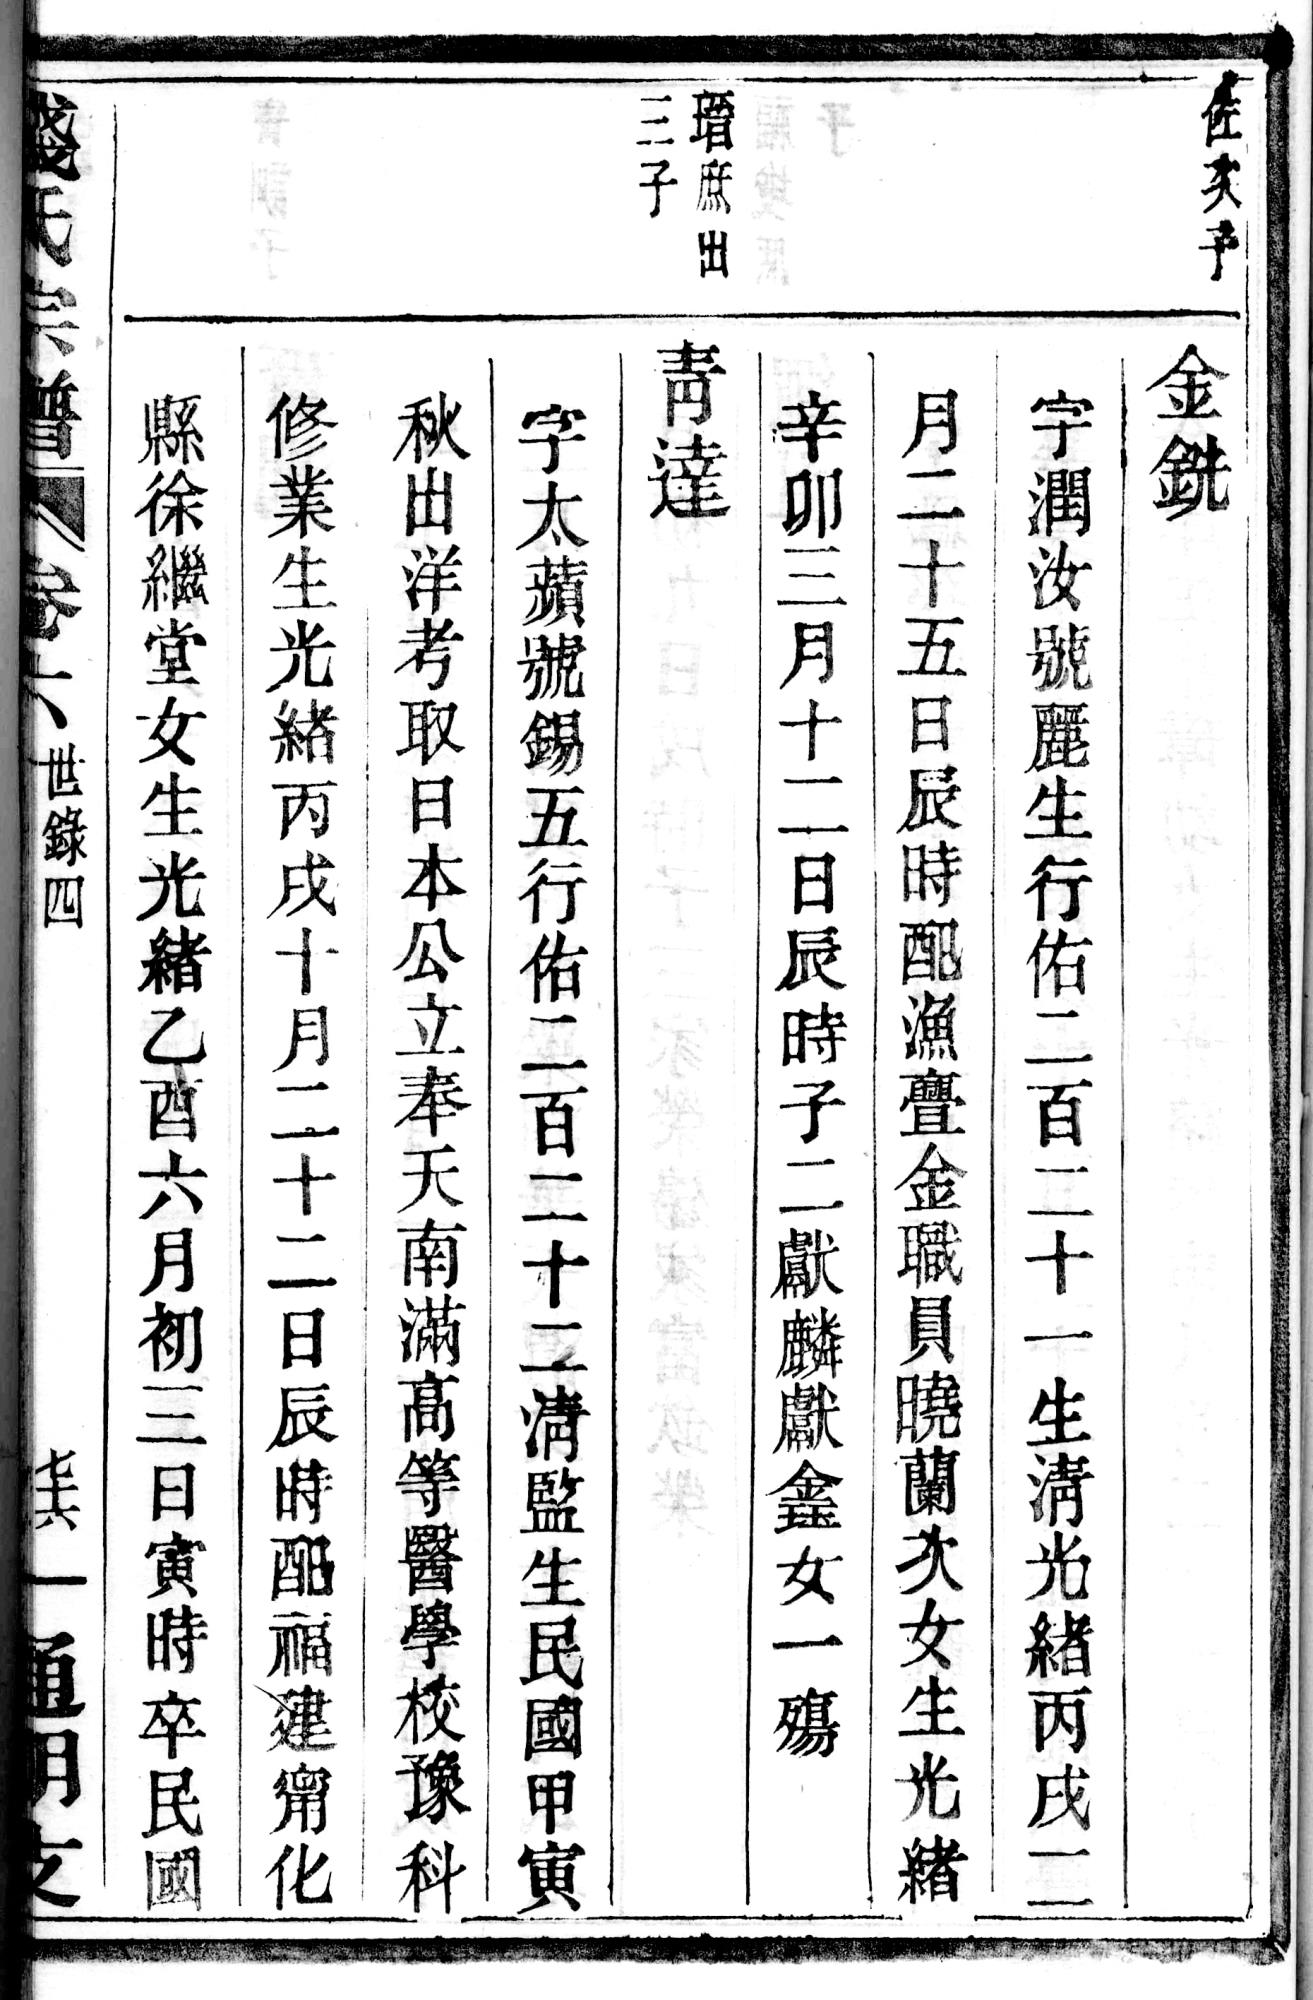 佐次子
金銑
字潤汝號麗生行佑二百二十一生清光緒丙戌二
月二十五日辰時配漁亹金職員曉蘭次女生光緒
辛卯三月十二日辰時子二獻麟獻鑫女一殤
瑨庶出
三子
靑達
字太蘋號錫五行佑二百二十二清監生民國甲寅
秋出洋考取日本公立奉天南滿高等醫學校豫科
修業生光緒丙戌十月二十二日辰時配福建甯化
縣徐繼堂女生光緒乙酉六月初三日寅時卒民國
錢氏宗譜 卷六 世錄四 一 通明支